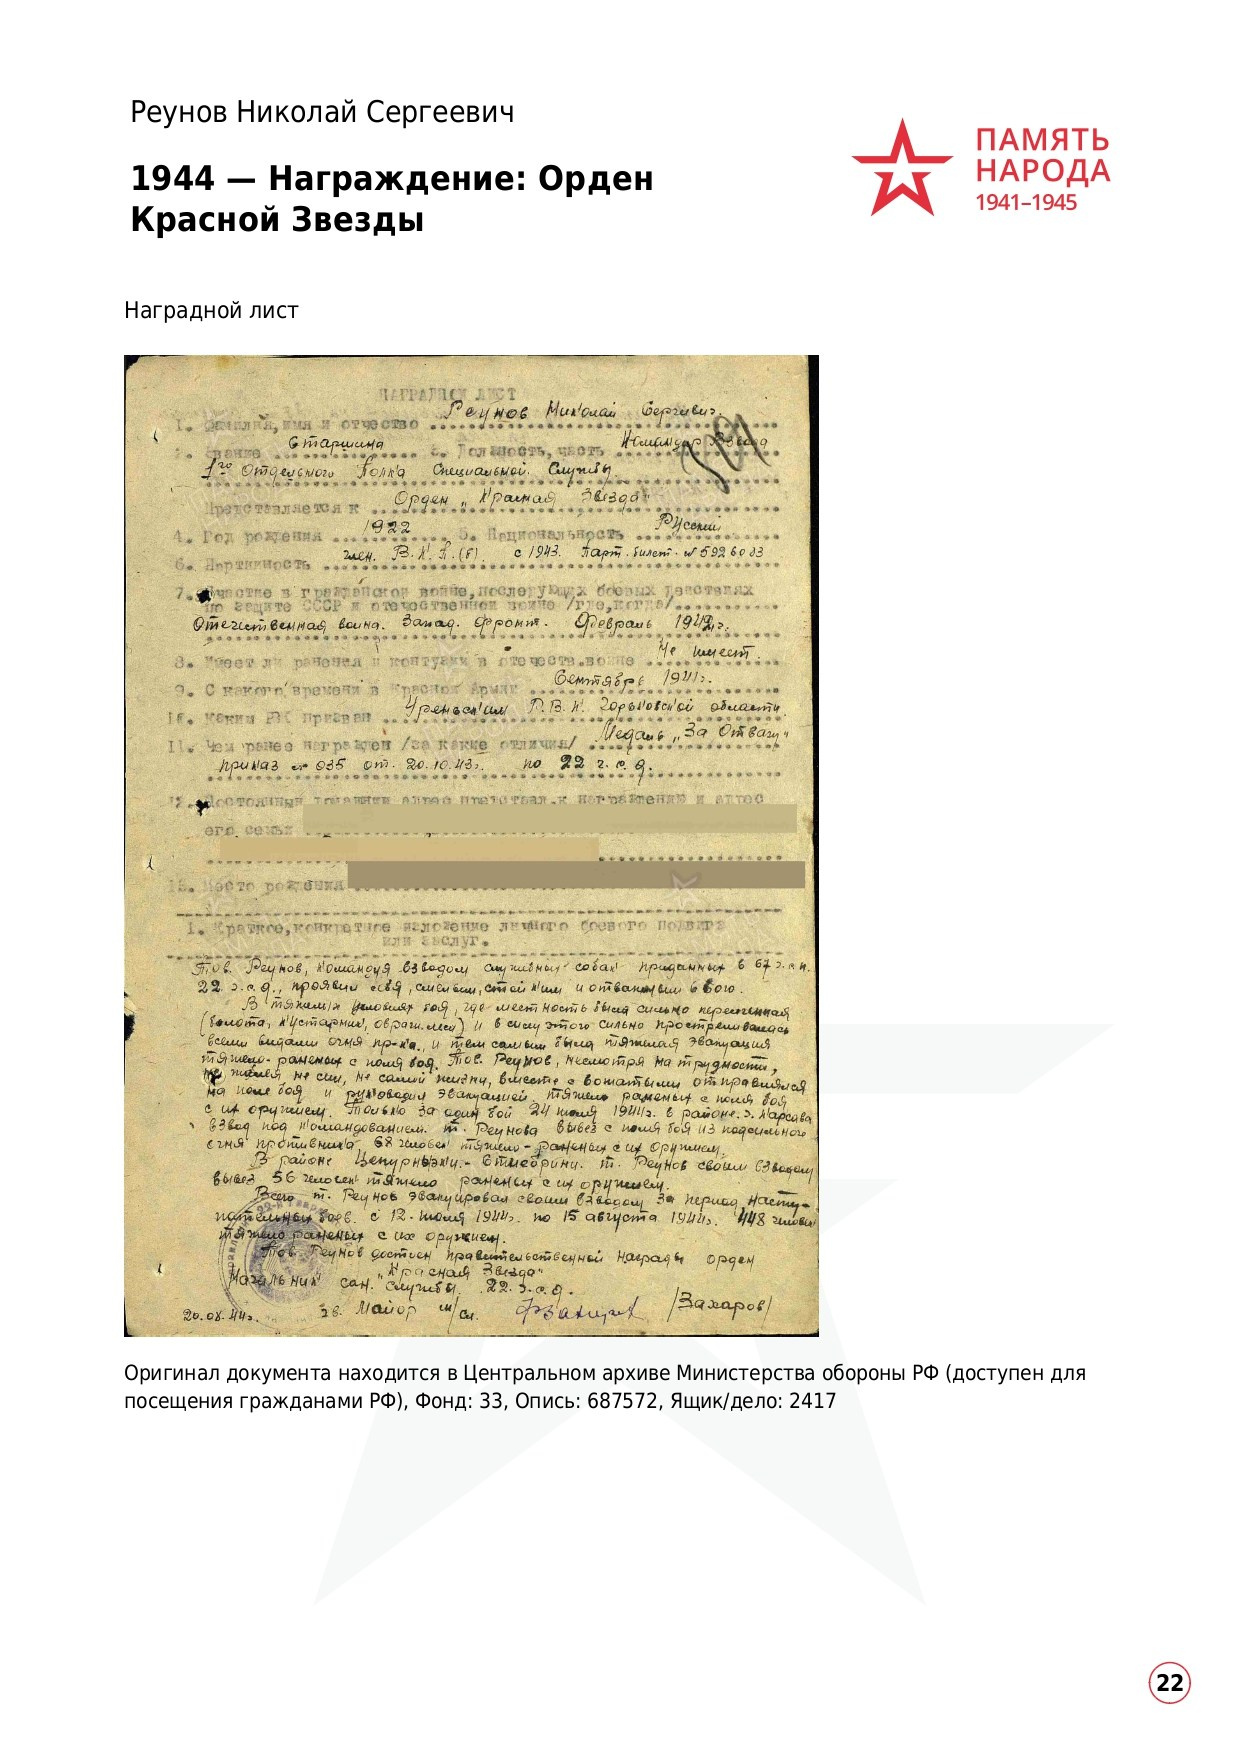 Реунов Николай Сергеевич
ПАМЯТЬ
НАРОДА
1941–1945
1944 — Награждение: Орден
Красной Звезды
Наградной лист
НАГРАДНОЙ ЛИСТ
1. Фамилия, имя и отчество Реунов Николай Сергеевич.
2. Звание Старшина 3. Должность, часть Командир Взвода
1го Отдельного Полка Специальной Службы.
Представляется к Орден „Красная Звезда"
4. Год рождения 1922 5. Национальность Русский
6. Партийность член. В.К.П.(б) с 1943. Парт. билет. №5926033
7. Участие в гражданской войне, последующих боевых действиях
по защите СССР и отечественной войне /где, когда/
Отечественная война. Запад. Фронт. Февраль 1942г.
8. Имеет ли ранения и контузии в отечеств. войне Не имеет.
9. С какого времени в Красной Армии Сентябрь 1941г.
10. Каким РВК призван Уренским Р.В.К. Горьковской области.
11. Чем ранее награжден /за какие отличия/ Медаль „За Отвагу"
приказ № 035 от. 20.10.43г. по 22 г.с.д.
12. Постоянный домашний адрес представл. к награждению и адрес
его семьи
13. Место рождения
1. Краткое, конкретное изложение личного боевого подвига
или заслуг.
Тов. Реунов, командуя взводом служивых собак приданных в 67 г.с.п.
22 г.с.д., проявил себя, смелым, стойким и отважным в бою.
В тяжелых условиях боя, где местность была сильно пересеченная
(болота, кустарник, овраги, леса) и в силу этого сильно простреливалась
всеми видами огня пр-ка, и тем самым была тяжелая эвакуация
тяжело-раненых с поля боя. Тов. Реунов, несмотря на трудности,
не жалея не сил, не самой жизни, вместе с вожатыми отправлялся
на поле боя и руководил эвакуацией тяжело раненых с поля боя
с их оружием. Только за один бой 24 июля 1944г. в районе г. Карсава
взвод под командованием. т. Реунова вывез с поля боя из под сильного
огня противника 68 человек тяжело-раненых с их оружием.
В районе т. Реунов своим взводом
вывез 56 человек тяжело раненых с их оружием.
Всего т. Реунов эвакуировал своим взводом за период насту-
пательных боев. с 12. июля 1944г. по 15 августа 1944г. 448 человек
тяжело раненых с их оружием.
Тов. Реунов достоен правительственной награды орден
„Красная Звезда"
Начальник сан. службы. 22. г.с.д.
20.08.44г. гв. Майор м/сл. /Захаров/
Оригинал документа находится в Центральном архиве Министерства обороны РФ (доступен для
посещения гражданами РФ), Фонд: 33, Опись: 687572, Ящик/дело: 2417
22